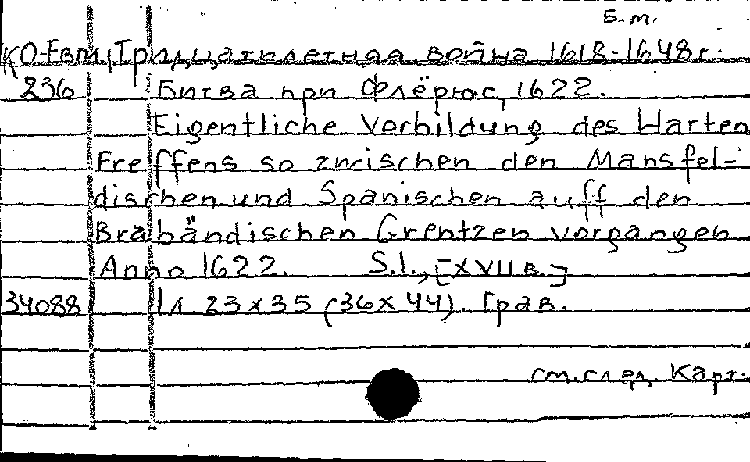 Б.м.
КО-Евм, Тридцатилетняя война 1618-1648г.
236 Битва при Флёрюс, 1622.
Eigentliche Vorbildung des Harten
Freffens so zwischen den Mansfel-
dischen und Spanischen auff den
Brabändischen Grentzen vorgangen
Anno 1622. S.l., [XVII в.]
34088 1л. 23х35 (36х44). Грав.
см. след. карт.